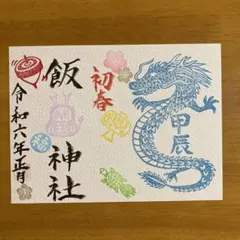 甲辰
初春
飯
神社
令和六年正月